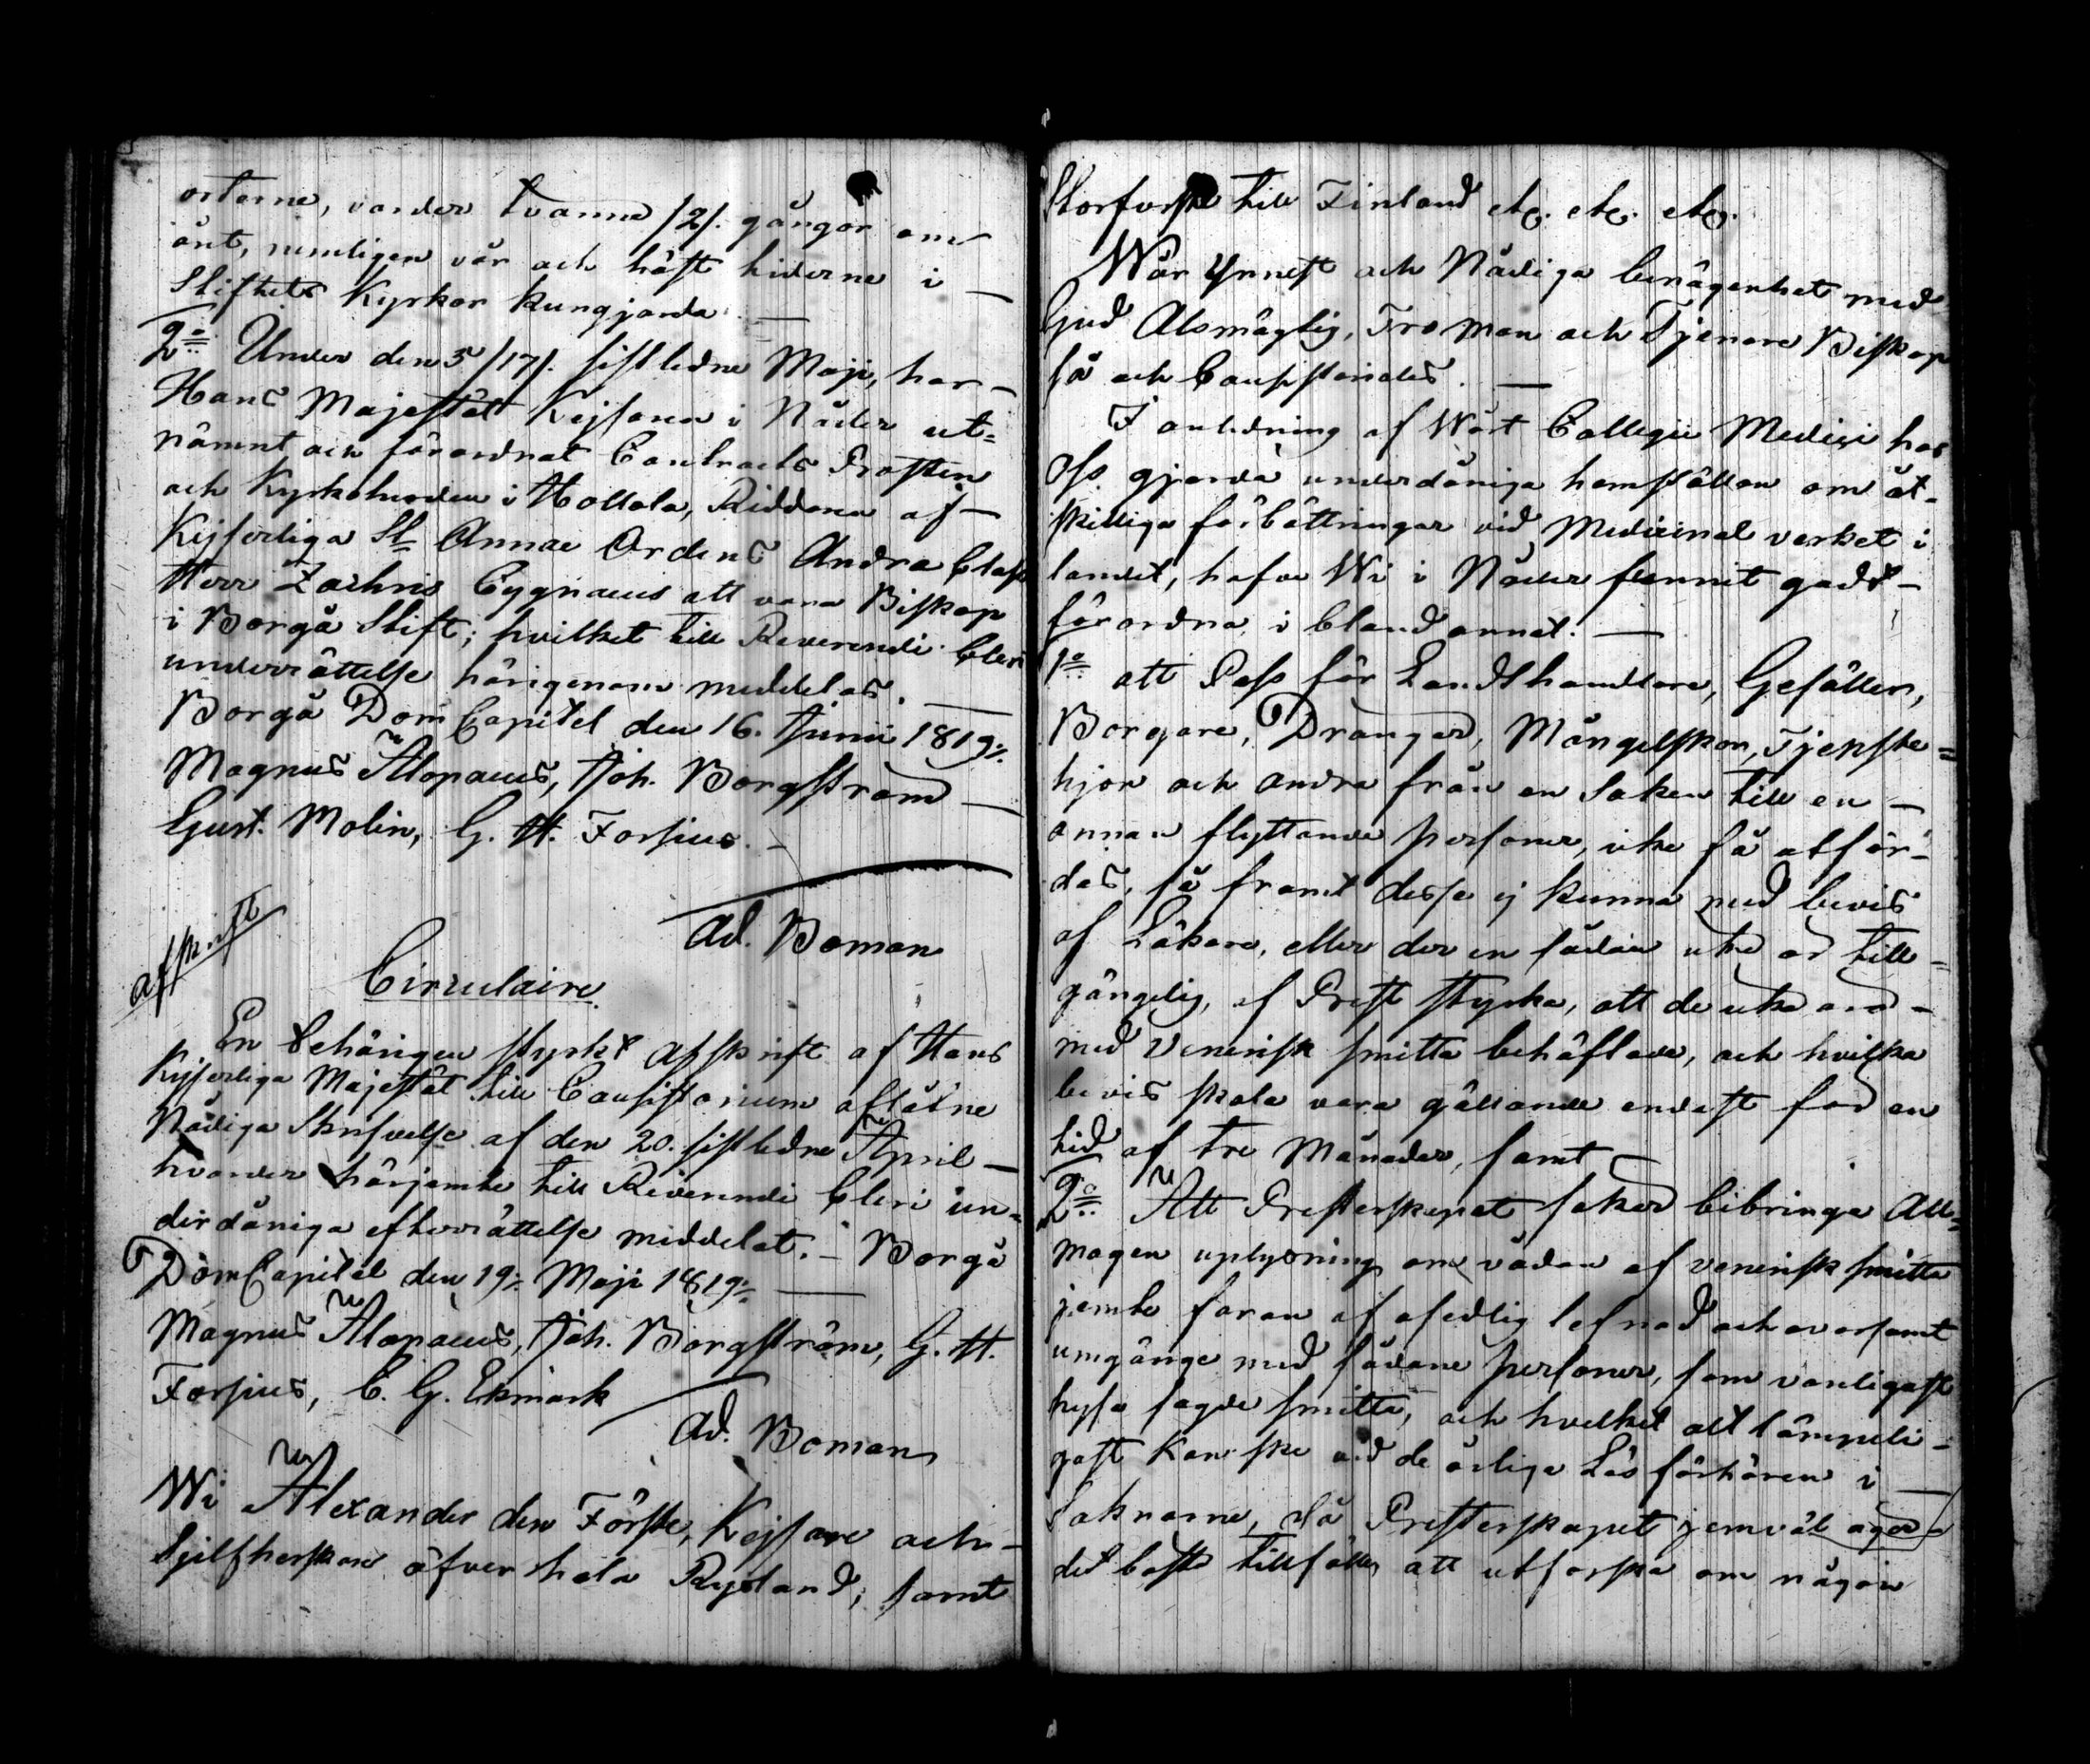 orterne, vorder tvanne /2/. gångor om
året, nemligen vår och höst tiderne i —
Stiftets Kyrkor kungjorda. —
2:o Under den 5/17/. sistledne Maji, har —
Hans Majestät Kejsaren i Nåder ut=
nämnt och förordnat Contracts Prosten
och Kyrkoherden i Hollola, Riddaren af —
Kejserliga St Annae Ordens Andra Class
Herr Zachris Cygnaeus att vara Biskop
i Borgå Stift; hvilket till Reverendi Cleri
underrättelse härigenom meddelas.
Borgå Dom Capitel den 16. Junii 1819:
Magnus Alopaeus, Joh. Borgström —
Gust. Molin, G. H. Forsius. —
Ad. Boman
Afskrift
Circulaire.
En behörigen styrkt Afskrift af Hans
Kejserliga Majestät till Consistorium aflåtne
Nådiga Skrifvelse af den 20. sistledne April —
hvorder härjemte till Reverendi Cleri un=
derdåniga efterrättelse meddelat. — Borgå
DomCapitel den 19: Maji 1819: —
Magnus Alopaeus, Joh. Borgström, G. H.
Forsius, C. G. Ekmark
Ad. Boman
Wi Alexander den Förste, Kejsare och —
Sjelfherskare öfver hela Ryssland; samt
Storfurste till Finland etc. etc. etc.
Wår ynnest och Nådiga benägenhet med
Gud Alsmägtig, Tro Man och Tjenare Biskop
så och Consistoriales. —
I anledning af Wårt Collegii Medici hos
Oss gjorda underdåniga hemställan om åt=
skilliga förbättringar vid Medicinal verket i
landet, hafve Wi i Nåder funnit godt —
förordna, i bland annat: —
1:o att Pass för Landthandlare, Gesäller,
Borgare, Drängar, Månglerskor, Tjenste=
hjon och andra från en Soken till en —
annan flyttande personer, icke få utfär=
das, så framt desse ej kunna med bevis
af Läkare, eller der en sådan icke är till=
gänglig, af Prest styrka, att de icke äro —
med Venerisk smitta behäftade, och hvilka
bevis skola vara gällande endast för en
tid af tre Månader, samt —
2:o Att Presterskapet söker bibringa All=
mogen uplysning om vådan af venerisk smitta
jemte faran af osedlig lefnad och ovarsamt
umgänge med sådane personer, som vanligast
hysa sagde smitta, och hvilket allt lämpeli=
gast kan ske vid de årliga Läs förhören i —
Soknarne, då Presterskapet jemväl äger
det bästa tillfälle att utforska om någon